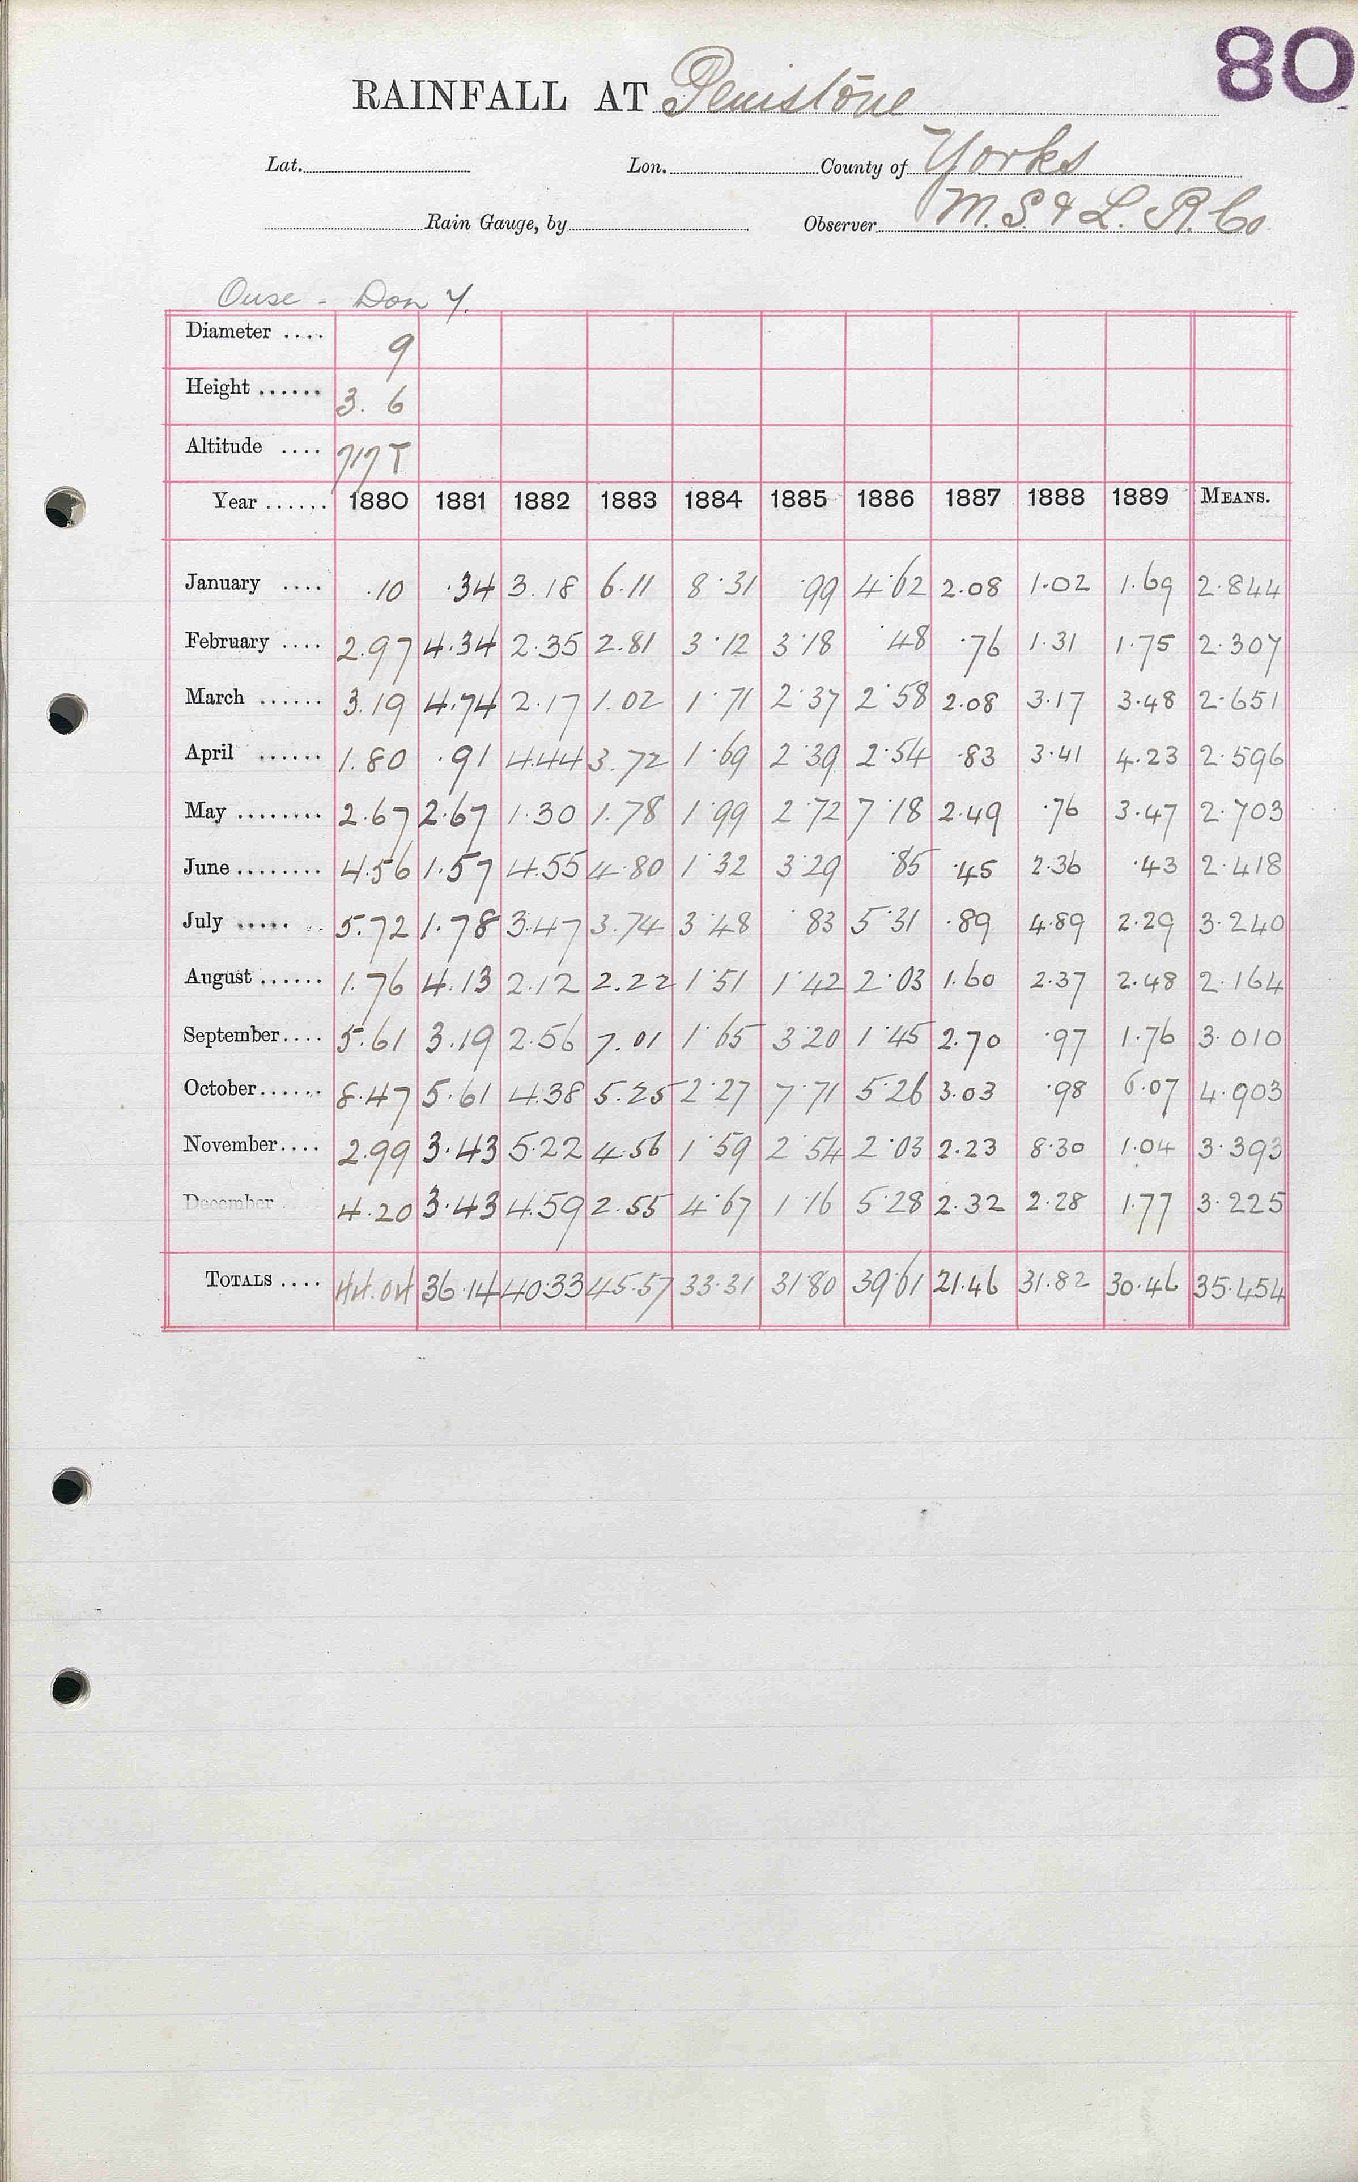 80
RAINFALL AT Penistone
Lat. Lon. County of Yorks
Rain Gauge, by Observer M.S. & L. R. Co
Ouse - Don Y.
Diameter .... 9
Height ...... 3. 6
Altitude .... 717 T
Year ...... 1880 1881 1882 1883 1884 1885 1886 1887 1888 1889 MEANS.
January .... .10 .34 3.18 6.11 8.31 .99 4.62 2.08 1.02 1.69 2.844
February .... 2.97 4.34 2.35 2.81 3.12 3.18 .48 .76 1.31 1.75 2.307
March ...... 3.19 4.74 2.17 1.02 1.71 2.37 2.58 2.08 3.17 3.48 2.651
April ...... 1.80 .91 4.44 3.72 1.69 2.39 2.54 .83 3.41 4.23 2.596
May ........ 2.67 2.67 1.30 1.78 1.99 2.72 7.18 2.49 .76 3.47 2.703
June ........ 4.56 1.57 4.55 4.80 1.32 3.29 .85 .45 2.36 .43 2.418
July ..... .. 5.72 1.78 3.47 3.74 3.48 .83 5.31 .89 4.89 2.29 3.240
August ...... 1.76 4.13 2.12 2.22 1.51 1.42 2.03 1.60 2.37 2.48 2.164
September.... 5.61 3.19 2.56 7.01 1.65 3.20 1.45 2.70 .97 1.76 3.010
October...... 8.47 5.61 4.38 5.25 2.27 7.71 5.26 3.03 .98 6.07 4.903
November.... 2.99 3.43 5.22 4.56 1.59 2.54 2.03 2.23 8.30 1.04 3.393
December . 4.20 3.43 4.59 2.55 4.67 1.16 5.28 2.32 2.28 1.77 3.225
TOTALS .... 44.04 36.14 40.33 45.57 33.31 31.80 39.61 21.46 31.82 30.46 35.454